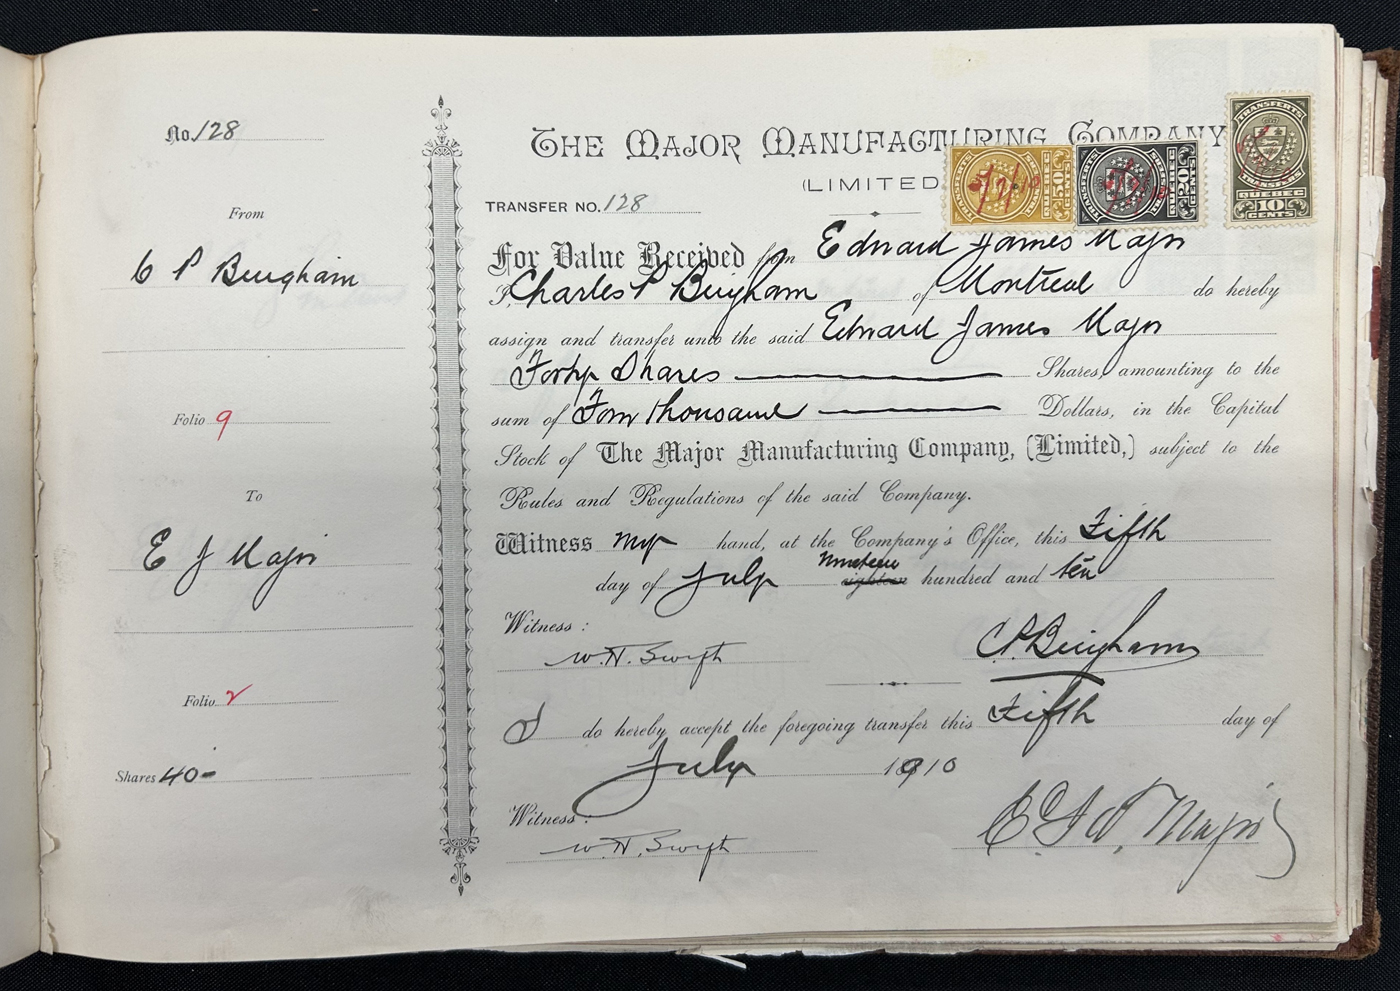 No. 128
From
C P Bingham
Folio 9
To
E J Major
Folio 2
Shares 40-
THE MAJOR MANUFACTURING COMPANY
(LIMITED
TRANSFER NO. 128
TRANSFERTS
TRANSFERS
QUEBEC
50 CENTS
5/7/10
TRANSFERTS
TRANSFERS
QUEBEC
20 CENTS
5/7/10
TRANSFERTS
TRANSFERS
QUEBEC
10 CENTS
For Value Received from Edward James Major
I, Charles P Bingham of Montreal do hereby
assign and transfer unto the said Edward James Major
Forty Shares Shares, amounting to the
sum of Four thousand Dollars, in the Capital
Stock of The Major Manufacturing Company, (Limited,) subject to the
Rules and Regulations of the said Company.
Witness my hand, at the Company's Office, this Fifth
day of July Nineteen eighteen hundred and ten
Witness :
W. H. Swift
C. P. Bingham
I do hereby accept the foregoing transfer this Fifth day of
July 1910
Witness :
W. H. Swift
Major